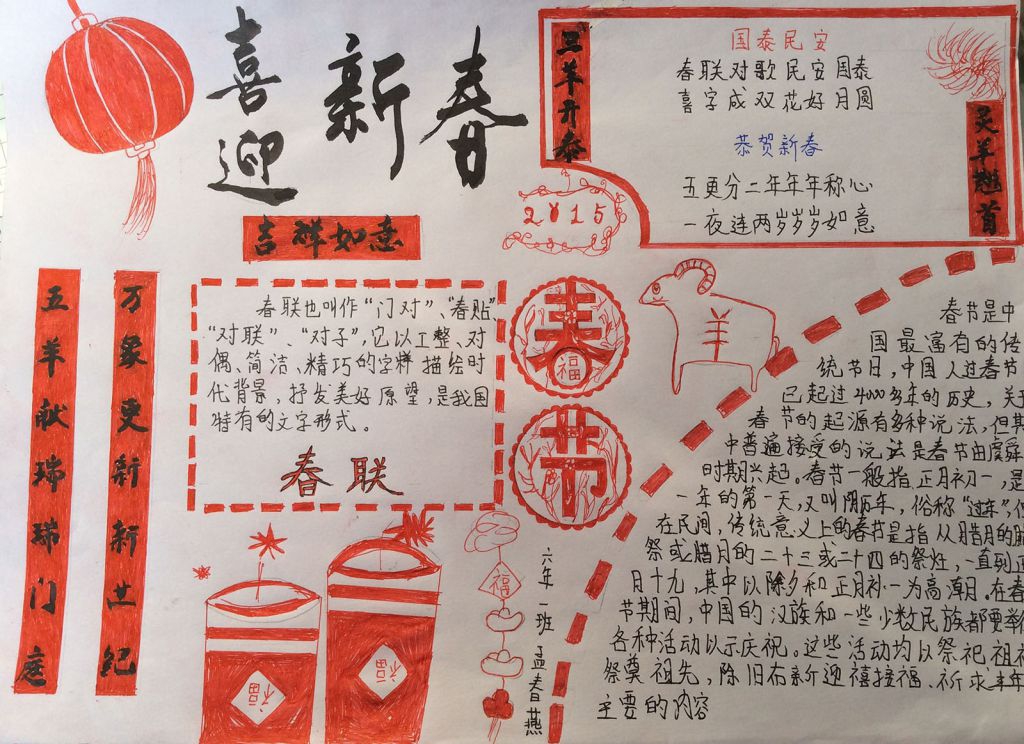 喜迎新春
吉祥如意
万象更新新世纪
五羊献瑞瑞门庭
三羊开泰
国泰民安
春联对歌民安国泰
喜字成双花好月圆
恭贺新春
五更分二年年年称心
一夜连两岁岁岁如意
灵羊翘首
2015
春联也叫作“门对”、“春贴”、
“对联”、“对子”,它以工整、对
偶、简洁、精巧的字样描绘时
代背景,抒发美好原望,是我国
特有的文字形式。
春联
春
福
节
羊
春节是中
国最富有的传
统节日,中国人过春节
已起过4000多年的历史,关于
春节的起源有多种说法,但其
中普遍接受的说法是春节由虞舜
时期兴起。春节一般指正月初一,是
一年的第一天,又叫阴历年,俗称“过年”,
在民间,传统意义上的春节是指从腊月的腊
祭或腊月的二十三或二十四的祭灶,一直到正
月十九,其中以除夕和正月初一为高潮月,在春
节期间,中国的汉族和一些少数民族都要举
各种活动以示庆祝。这些活动均以祭祀祖
祭奠祖先,除旧布新迎禧接福、祈求丰年
主要的内容
福
福
福
六年一班 孟春燕